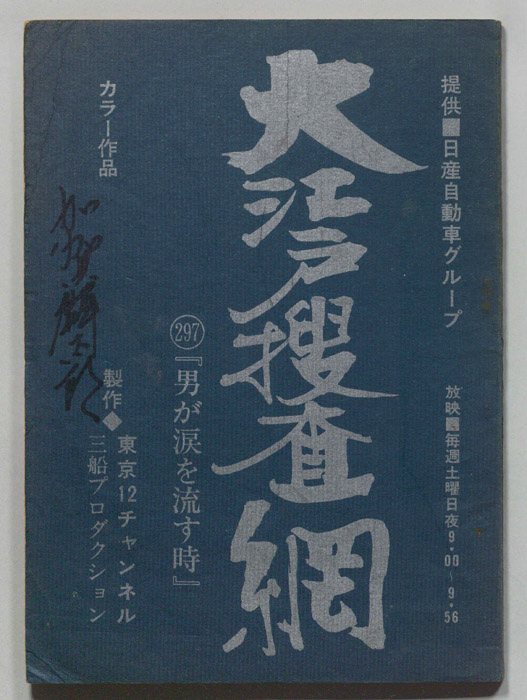 提供■日産自動車グループ
放映■毎週土曜日夜9・00〜9・56
大江戸捜査網
297『男が涙を流す時』
カラー作品
製作◆東京12チャンネル
三船プロダクション